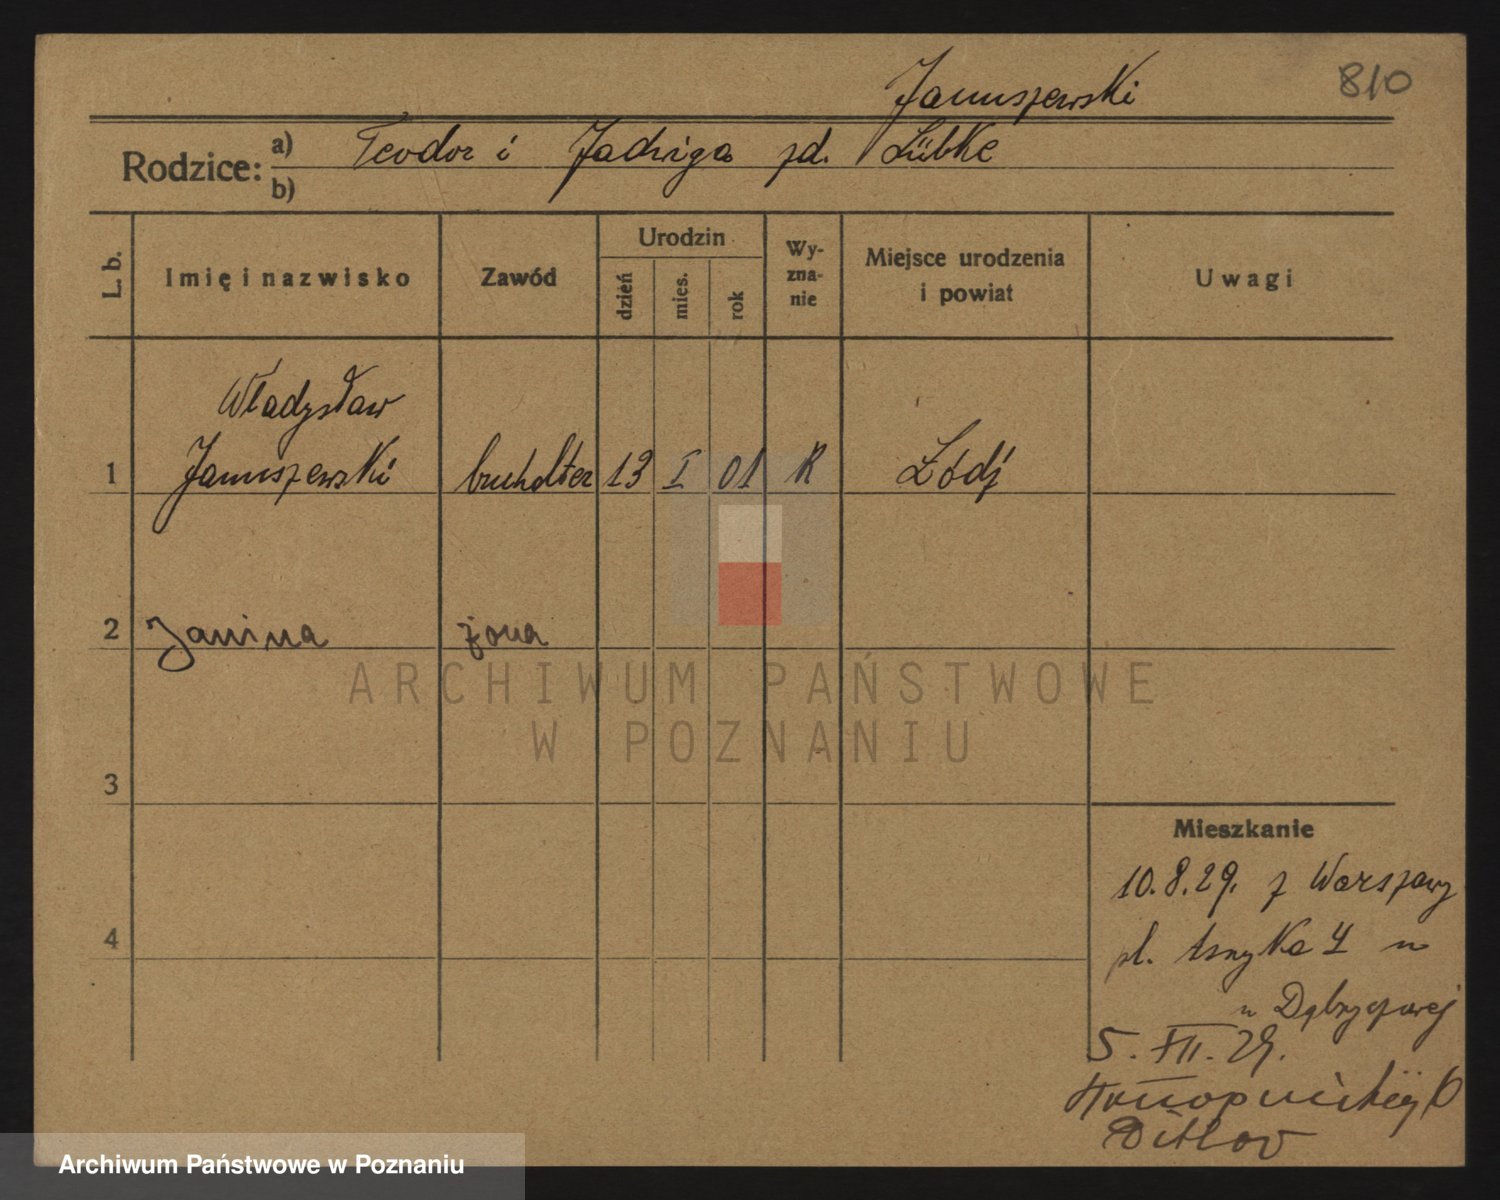 Januszewski
810
Rodzice: a) Teodor i Jadwiga zd. Lübke
b)
L. b.
Imię i nazwisko
Zawód
Urodzin
dzień
mies.
rok
Wy-
zna-
nie
Miejsce urodzenia
i powiat
Uwagi
Władysław
1 Januszewski buchalter 13 I 01 R Łódź
2 Janina żona
3
4
ARCHIWUM PAŃSTWOWE
W POZNANIU
Mieszkanie
10.8.29. z Warszawy
pl. Asnyka 4 m
u Dąbryczowej
5. XII. 29.
Konopnickiej
Archiwum Państwowe w Poznaniu